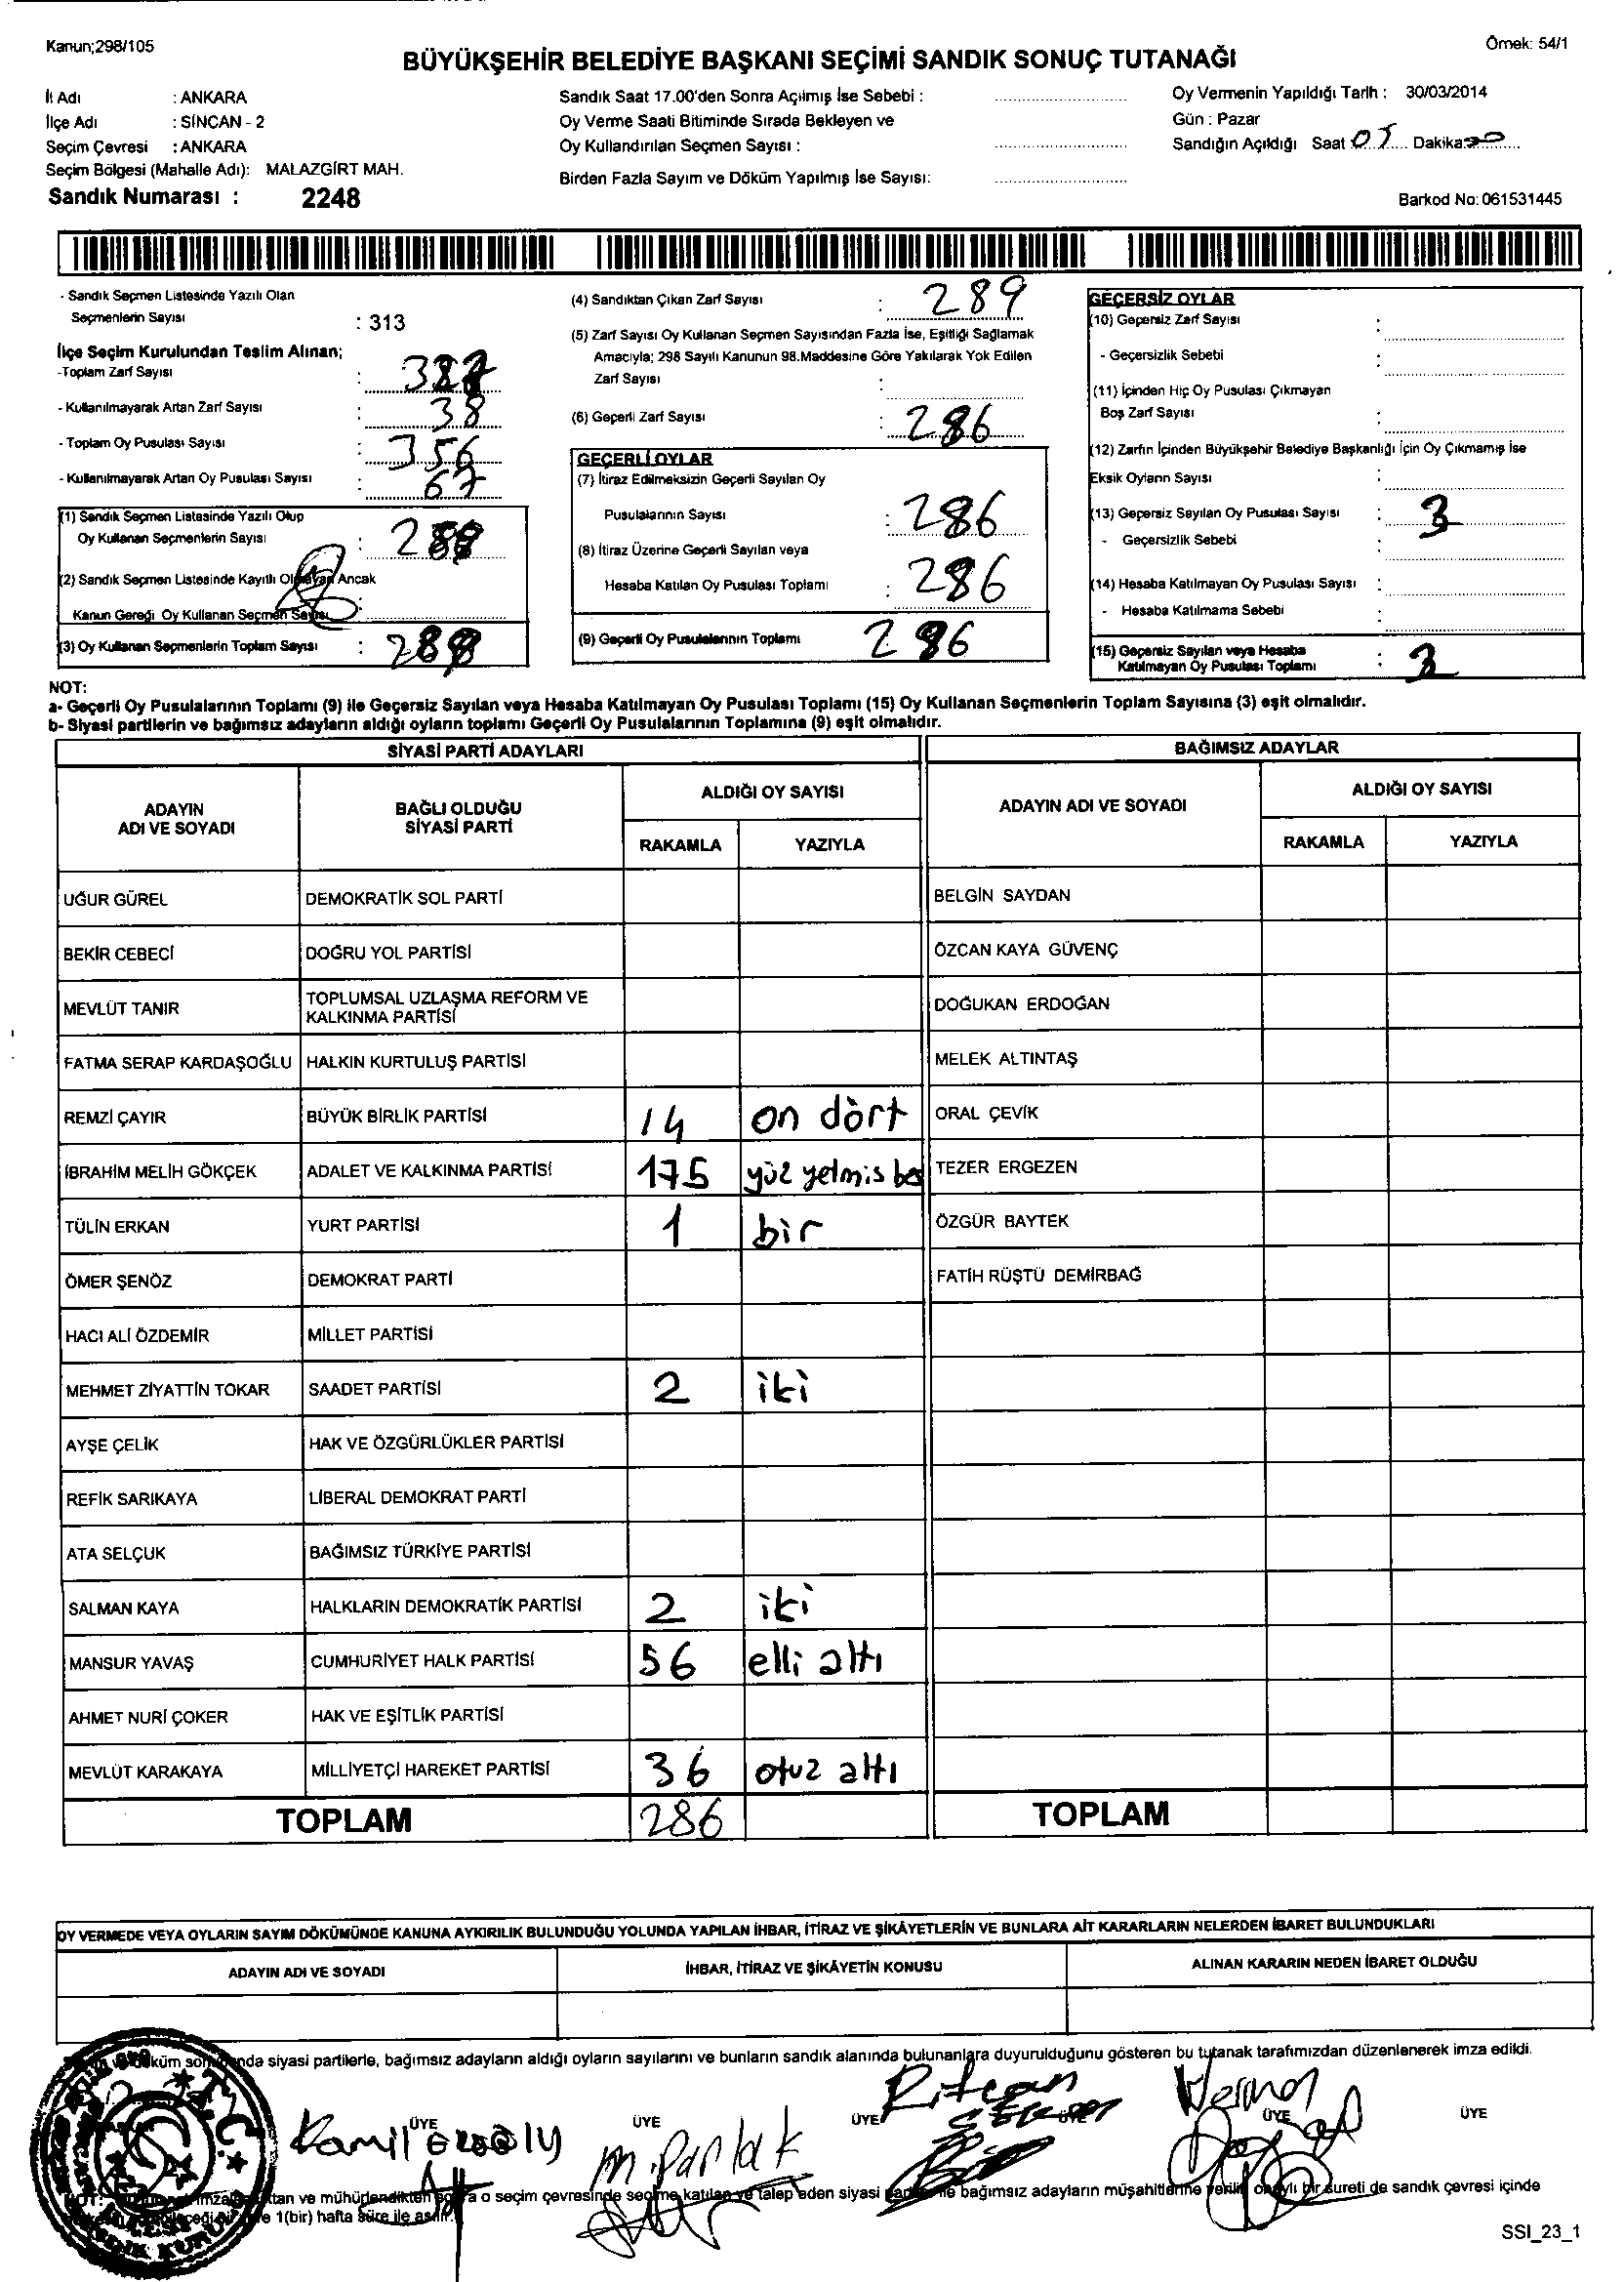 Kanun;298/105
Örnek: 54/1
BÜYÜKŞEHİR BELEDİYE BAŞKANI SEÇİMİ SANDIK SONUÇ TUTANAĞI
İl Adı : ANKARA
İlçe Adı : SİNCAN - 2
Seçim Çevresi : ANKARA
Seçim Bölgesi (Mahalle Adı): MALAZGİRT MAH.
Sandık Numarası : 2248
Sandık Saat 17.00'den Sonra Açılmış İse Sebebi :
Oy Verme Saati Bitiminde Sırada Bekleyen ve
Oy Kullandırılan Seçmen Sayısı :
Birden Fazla Sayım ve Döküm Yapılmış İse Sayısı:
Oy Vermenin Yapıldığı Tarih : 30/03/2014
Gün : Pazar
Sandığın Açıldığı Saat 05 Dakika
Barkod No: 061531445
- Sandık Seçmen Listesinde Yazılı Olan
Seçmenlerin Sayısı : 313
İlçe Seçim Kurulundan Teslim Alınan;
-Toplam Zarf Sayısı :
- Kullanılmayarak Artan Zarf Sayısı : 38
- Toplam Oy Pusulası Sayısı : 356
- Kullanılmayarak Artan Oy Pusulası Sayısı : 67
(1) Sandık Seçmen Listesinde Yazılı Olup
Oy Kullanan Seçmenlerin Sayısı :
(2) Sandık Seçmen Listesinde Kayıtlı Olmayan Ancak
Kanun Gereği Oy Kullanan Seçmen Sayısı :
(3) Oy Kullanan Seçmenlerin Toplam Sayısı :
(4) Sandıktan Çıkan Zarf Sayısı : 289
(5) Zarf Sayısı Oy Kullanan Seçmen Sayısından Fazla İse, Eşitliği Sağlamak
Amacıyla; 298 Sayılı Kanunun 98.Maddesine Göre Yakılarak Yok Edilen
Zarf Sayısı :
(6) Geçerli Zarf Sayısı : 286
GEÇERLİ OYLAR
(7) İtiraz Edilmeksizin Geçerli Sayılan Oy
Pusulalarının Sayısı : 286
(8) İtiraz Üzerine Geçerli Sayılan veya
Hesaba Katılan Oy Pusulası Toplamı : 286
(9) Geçerli Oy Pusulalarının Toplamı 286
GEÇERSİZ OYLAR
(10) Geçersiz Zarf Sayısı :
- Geçersizlik Sebebi :
(11) İçinden Hiç Oy Pusulası Çıkmayan
Boş Zarf Sayısı :
(12) Zarfın İçinden Büyükşehir Belediye Başkanlığı İçin Oy Çıkmamış İse
Eksik Oyların Sayısı :
(13) Geçersiz Sayılan Oy Pusulası Sayısı : 3
- Geçersizlik Sebebi :
(14) Hesaba Katılmayan Oy Pusulası Sayısı :
- Hesaba Katılmama Sebebi :
(15) Geçersiz Sayılan veya Hesaba
Katılmayan Oy Pusulası Toplamı : 3
NOT:
a- Geçerli Oy Pusulalarının Toplamı (9) ile Geçersiz Sayılan veya Hesaba Katılmayan Oy Pusulası Toplamı (15) Oy Kullanan Seçmenlerin Toplam Sayısına (3) eşit olmalıdır.
b- Siyasi partilerin ve bağımsız adayların aldığı oyların toplamı Geçerli Oy Pusulalarının Toplamına (9) eşit olmalıdır.
SİYASİ PARTİ ADAYLARI
ADAYIN
ADI VE SOYADI
BAĞLI OLDUĞU
SİYASİ PARTİ
ALDIĞI OY SAYISI
RAKAMLA YAZIYLA
UĞUR GÜREL DEMOKRATİK SOL PARTİ
BEKİR CEBECİ DOĞRU YOL PARTİSİ
MEVLÜT TANIR TOPLUMSAL UZLAŞMA REFORM VE
KALKINMA PARTİSİ
FATMA SERAP KARDAŞOĞLU HALKIN KURTULUŞ PARTİSİ
REMZİ ÇAYIR BÜYÜK BİRLİK PARTİSİ 14 on dört
İBRAHİM MELİH GÖKÇEK ADALET VE KALKINMA PARTİSİ 175 yüz yetmis beş
TÜLİN ERKAN YURT PARTİSİ 1 bir
ÖMER ŞENÖZ DEMOKRAT PARTİ
HACI ALİ ÖZDEMİR MİLLET PARTİSİ
MEHMET ZİYATTİN TOKAR SAADET PARTİSİ 2 iki
AYŞE ÇELİK HAK VE ÖZGÜRLÜKLER PARTİSİ
REFİK SARIKAYA LİBERAL DEMOKRAT PARTİ
ATA SELÇUK BAĞIMSIZ TÜRKİYE PARTİSİ
SALMAN KAYA HALKLARIN DEMOKRATİK PARTİSİ 2 iki
MANSUR YAVAŞ CUMHURİYET HALK PARTİSİ 56 elli altı
AHMET NURİ ÇOKER HAK VE EŞİTLİK PARTİSİ
MEVLÜT KARAKAYA MİLLİYETÇİ HAREKET PARTİSİ 36 otuz altı
TOPLAM 286
BAĞIMSIZ ADAYLAR
ADAYIN ADI VE SOYADI
ALDIĞI OY SAYISI
RAKAMLA YAZIYLA
BELGİN SAYDAN
ÖZCAN KAYA GÜVENÇ
DOĞUKAN ERDOĞAN
MELEK ALTINTAŞ
ORAL ÇEVİK
TEZER ERGEZEN
ÖZGÜR BAYTEK
FATİH RÜŞTÜ DEMİRBAĞ
TOPLAM
OY VERMEDE VEYA OYLARIN SAYIM DÖKÜMÜNDE KANUNA AYKIRILIK BULUNDUĞU YOLUNDA YAPILAN İHBAR, İTİRAZ VE ŞİKÂYETLERİN VE BUNLARA AİT KARARLARIN NELERDEN İBARET BULUNDUKLARI
ADAYIN ADI VE SOYADI İHBAR, İTİRAZ VE ŞİKÂYETİN KONUSU ALINAN KARARIN NEDEN İBARET OLDUĞU
siyasi partilerle, bağımsız adayların aldığı oyların sayılarını ve bunların sandık alanında bulunanlara duyurulduğunu gösteren bu tutanak tarafımızdan düzenlenerek imza edildi.
ÜYE ÜYE ÜYE ÜYE ÜYE ÜYE
Kamil
M. Parlak
ve mühürlendikten sonra o seçim çevresinde seçime katılan ve talep eden siyasi ile bağımsız adayların müşahitlerine bir sureti de sandık çevresi içinde
1(bir) hafta süre ile asılır.
SSI_23_1